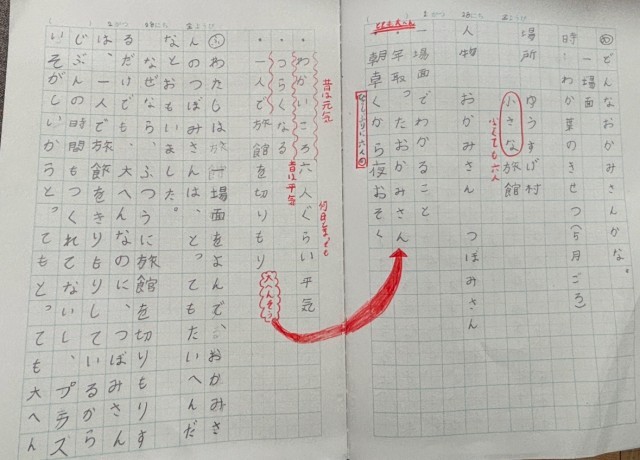 どんなおかみさんかな。
一場面
時 わか葉のきせつ(5月ごろ)
場所 ゆうすげ村
小さな旅館
小さくても六人
人物 おかみさん つぼみさん
一場面でわかること
・年取ったおかみさん
朝早くから夜おそく
ひさしぶりに六人の
昔は元気
・わかいころ六人ぐらい平気
・つらくなる
昔は平気
・一人で旅館を切りもり
大へんそう
わたしは、一場面をよんで、おかみさ
んのつぼみさんは、とってもたいへんだ
なとおもいました。
なぜなら、ふつうに旅館を切りもりす
るだけでも、大へんなのに、つぼみさん
は、一人で旅館をきりもりしているから
じぶん時間もつくれてないし、プラズ
いそがしい とってもとっても大へん